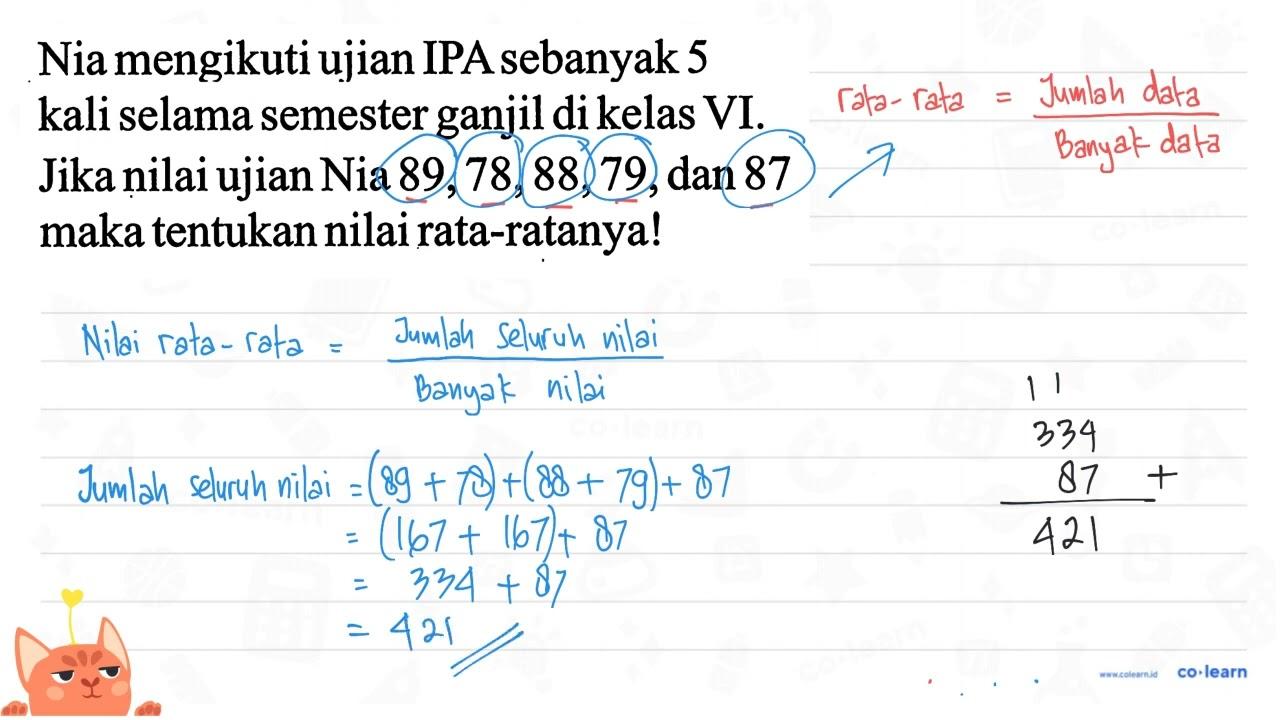 Nia mengikuti ujian IPA sebanyak 5
kali selama semester ganjil di kelas VI.
Jika nilai ujian Nia 89, 78, 88, 79, dan 87
maka tentukan nilai rata-ratanya!
rata-rata = Jumlah data
Banyak data
Nilai rata-rata = Jumlah seluruh nilai
Banyak nilai
Jumlah seluruh nilai = (89 + 78) + (88 + 79) + 87
= (167 + 167) + 87
= 334 + 87
= 421
1 1
334
87 +
421
co-learn
www.colearn.id co·learn